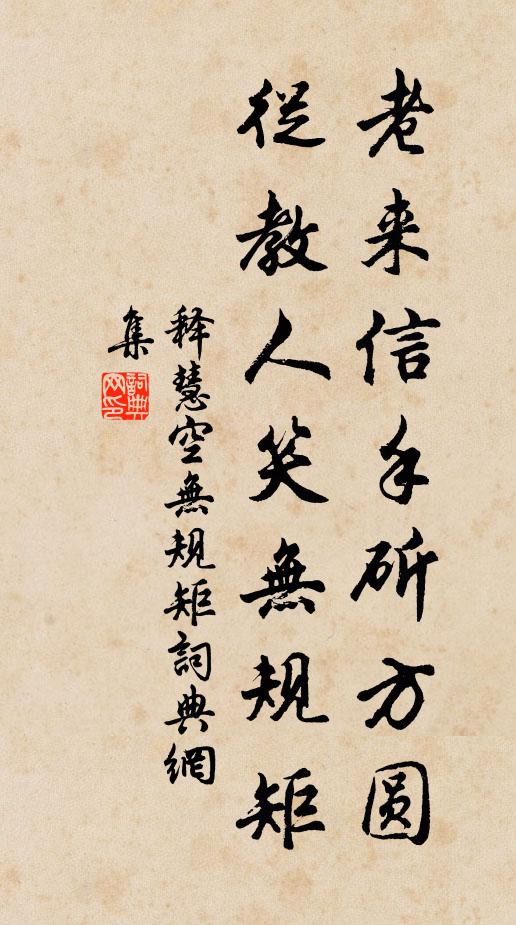 老来信手斫方圆
從教人笑無規矩
释慧空無規矩詞典網
集
詞典
网印